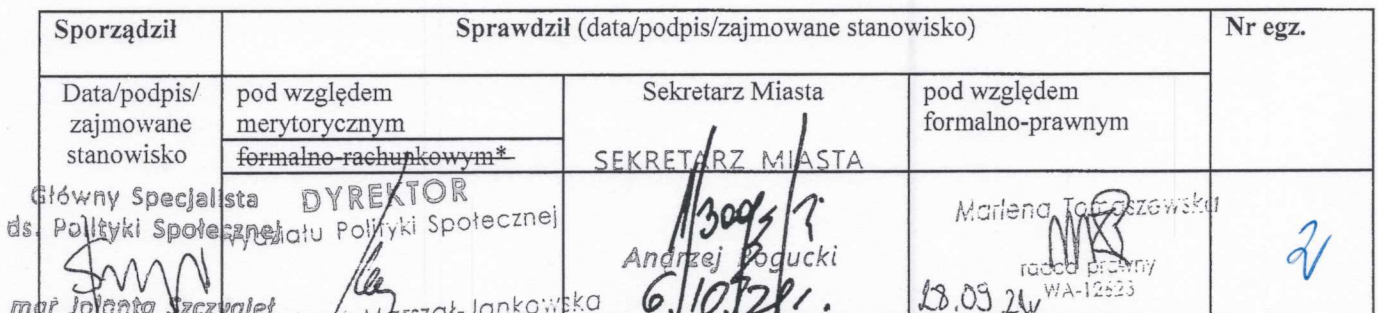 Sporządził Sprawdził (data/podpis/zajmowane stanowisko) Nr egz.
Data/podpis/ zajmowane stanowisko
pod względem merytorycznym
formalno-rachunkowym*
Sekretarz Miasta
pod względem formalno-prawnym
SEKRETARZ MIASTA
Główny Specjalista
ds. Polityki Społecznej
mgr Jolanta
DYREKTOR
Wydziału Polityki Społecznej
Jankowska
Andrzej Bogucki
Marlena Tomaszewska
radca prawny
WA-12523
28.09.21r
2